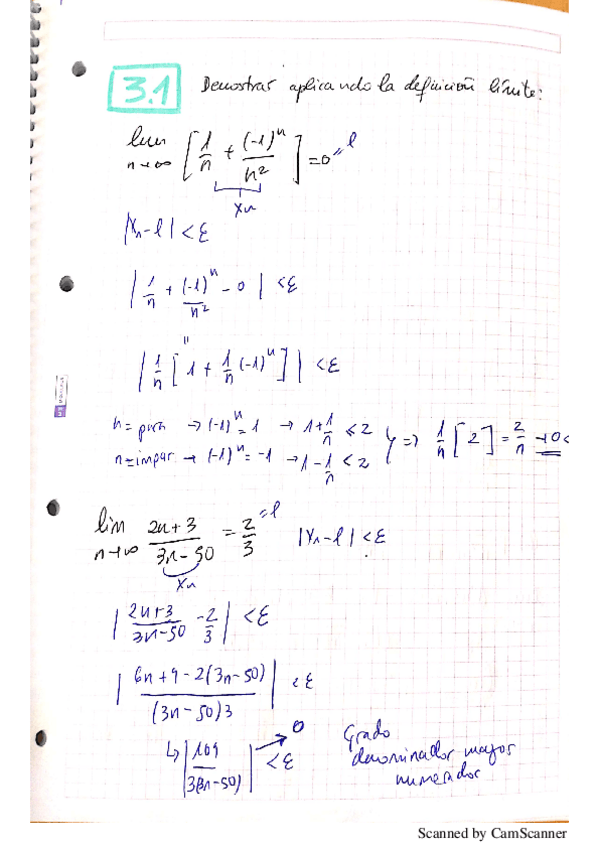 3.1 Demostrar aplicando la definición límite:
lim n→∞ [1/n + (-1)^n/n²] = 0 = l
xn
|xn - l| < ε
|1/n + (-1)^n/n² - 0| < ε
"
|1/n [1 + 1/n (-1)^n]| < ε
n = par → (-1)^n = 1 → 1 + 1/n ≤ 2
n = impar → (-1)^n = -1 → 1 - 1/n < 2 } => 1/n [2] = 2/n → 0 <
lim n→∞ (2n+3)/(3n-50) = 2/3 = l |xn - l| < ε
xn
|(2n+3)/(3n-50) - 2/3| < ε
|(6n + 9 - 2(3n-50))/((3n-50)3)| < ε
↳ |109/(3(3n-50))| → 0 < ε Grado
denominador mayor
numerador
Scanned by CamScanner